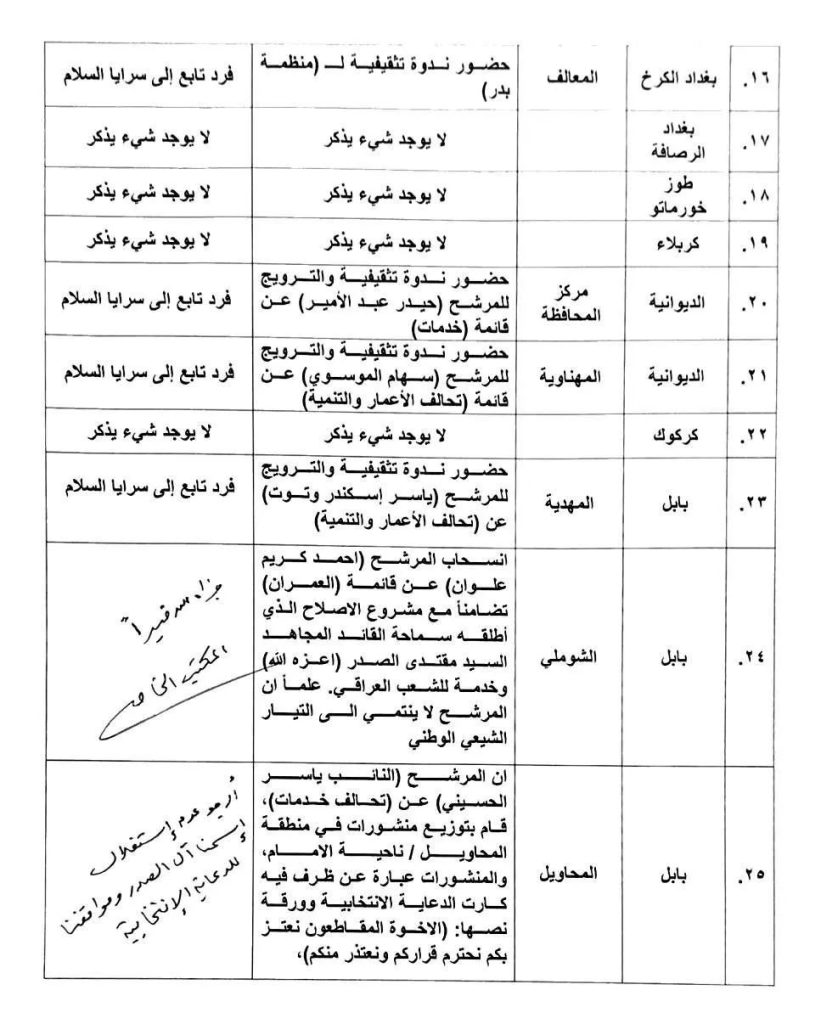 ١٦. بغداد الكرخ المعالف حضور ندوة تثقيفية لـ (منظمة فرد تابع إلى سرايا السلام
بدر)
١٧. بغداد لا يوجد شيء يذكر لا يوجد شيء يذكر
الرصافة
١٨. طوز لا يوجد شيء يذكر لا يوجد شيء يذكر
خورماتو
١٩. كربلاء لا يوجد شيء يذكر لا يوجد شيء يذكر
٢٠. الديوانية مركز
المحافظة
حضور ندوة تثقيفية والترويج
للمرشح (حيدر عبد الأمير) عن
قائمة (خدمات)
فرد تابع إلى سرايا السلام
٢١. الديوانية المهناوية
حضور ندوة تثقيفية والترويج
للمرشح (سهام الموسوي) عن
قائمة (تحالف الأعمار والتنمية)
فرد تابع إلى سرايا السلام
٢٢. كركوك لا يوجد شيء يذكر لا يوجد شيء يذكر
٢٣. بابل المهدية
حضور ندوة تثقيفية والترويج
للمرشح (ياسر إسكندر وتوت)
عن (تحالف الأعمار والتنمية)
فرد تابع إلى سرايا السلام
٢٤. بابل الشوملي
انسحاب المرشح (احمد كريم
علوان) عن قائمة (العمران)
تضامناً مع مشروع الاصلاح الذي
أطلقه سماحة القائد المجاهد
السيد مقتدى الصدر (اعزه الله)
وخدمة للشعب العراقي. علماً ان
المرشح لا ينتمي الى التيار
الشيعي الوطني
جزاه الله خيراً
المكتب الخاص
٢٥. بابل المحاويل
ان المرشح (النائب ياسر
الحسيني) عن (تحالف خدمات)،
قام بتوزيع منشورات في منطقة
المحاويل / ناحية الامام،
والمنشورات عبارة عن ظرف فيه
كارت الدعاية الانتخابية وورقة
نصها: (الاخوة المقاطعون نعتز
بكم نحترم قراركم ونعتذر منكم)،
أرجو عدم إستغلال
إسمنا آل الصدر ومواقفنا
للدعاية الإنتخابية